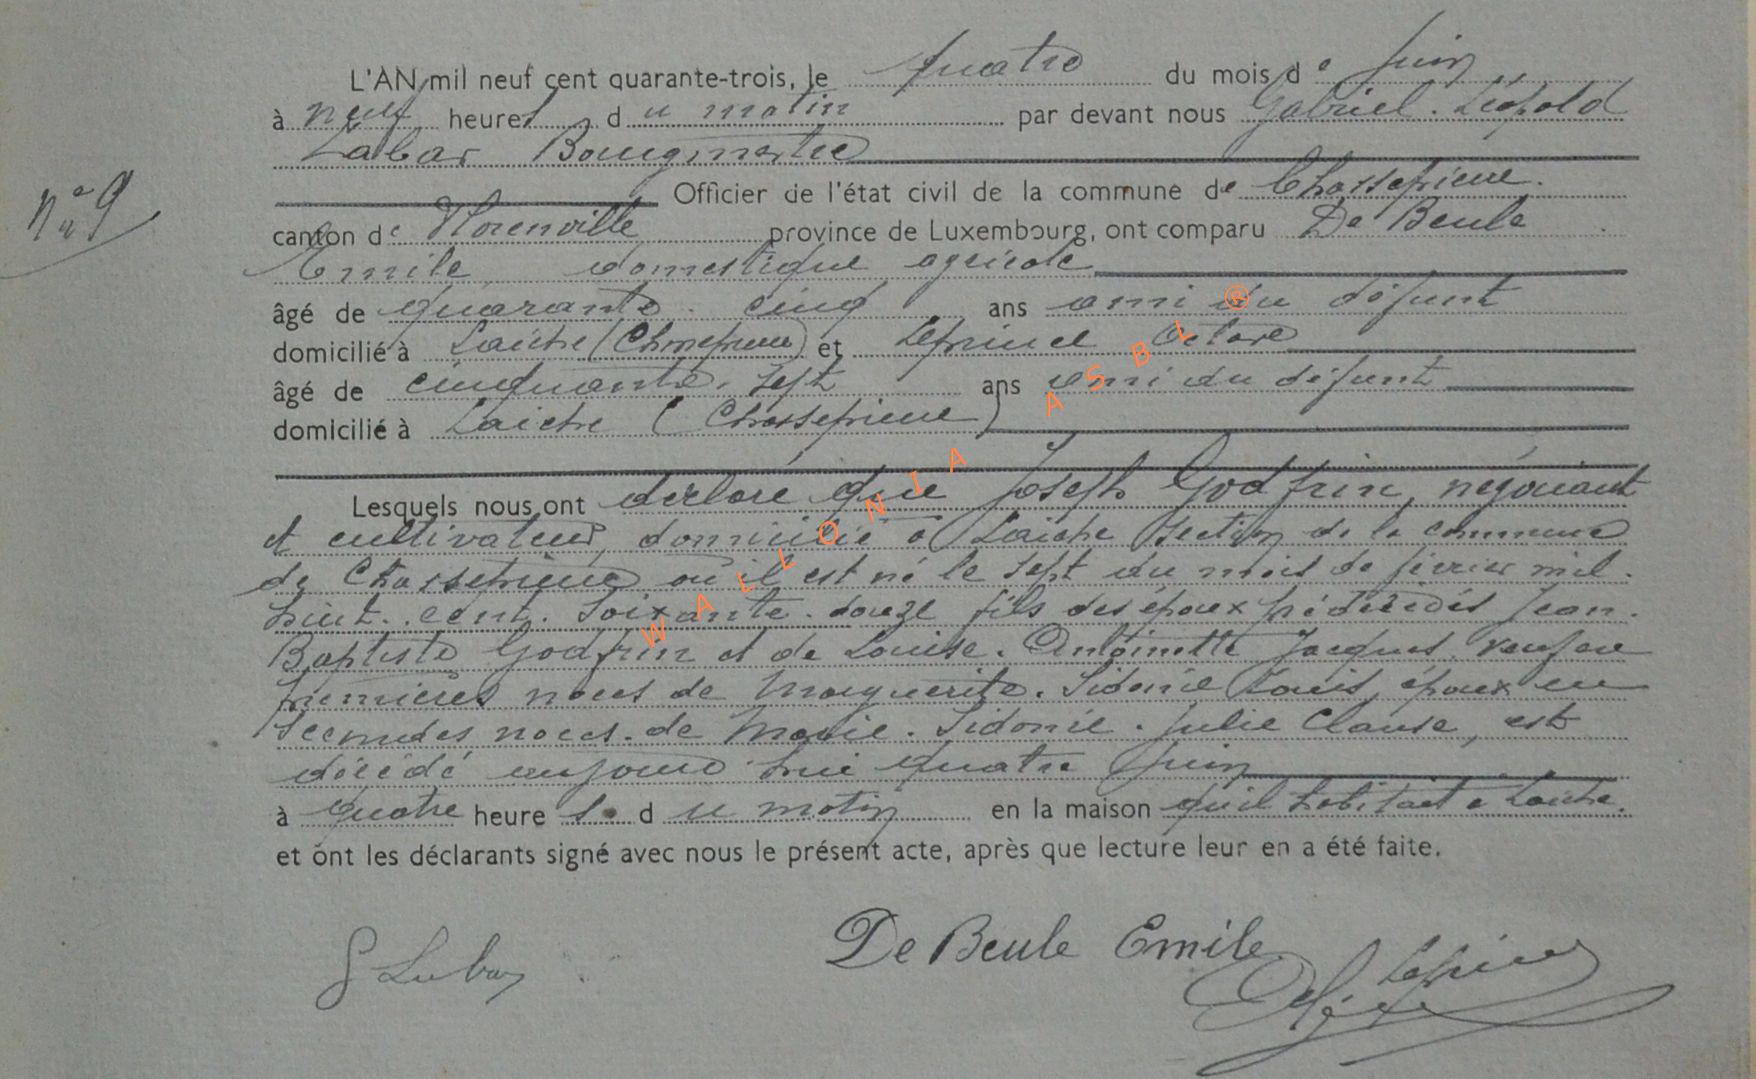 L'AN mil neuf cent quarante-trois, le quatre du mois de juin
à neuf heures du matin par devant nous Gabriel. Léopold
Labar Bourgmestre
Officier de l'état civil de la commune de Chassepierre.
N° 9
canton de Florenville province de Luxembourg, ont comparu De Beule
Emile domestique agricole
âgé de quarante. cinq ans ami du défunt
domicilié à Laiche (Chassepierre) et Lepine Octave
âgé de cinquante. sept ans ami du défunt
domicilié à Laiche (Chassepierre)
Lesquels nous ont déclaré que Joseph Godfrin, négociant
et cultivateur, domicilié à Laiche section de la commune
de Chassepierre où il est né le sept du mois de février mil.
huit. cent. soixante. douze fils des époux prédécédés Jean.
Baptiste Godfrin et de Louise. Antoinette Jacques veuf en
premières noces de Marguerite. Sidonie Louis, époux en
secondes noces de Marie. Sidonie. Julie Clause, est
décédé aujourd'hui quatre juin
à quatre heures du matin en la maison qu'il habitait à Laiche.
et ont les déclarants signé avec nous le présent acte, après que lecture leur en a été faite.
WALLONIA ASBL ®
G Labar De Beule Emile
Lepine